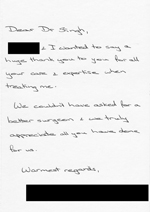 Dear Dr Singh,
& I wanted to say a
huge thank you to you for all
your care & expertise when
treating me.
We couldn't have asked for a
better surgeon & we truly
appreciate all you have done
for us.
Warmest regards,